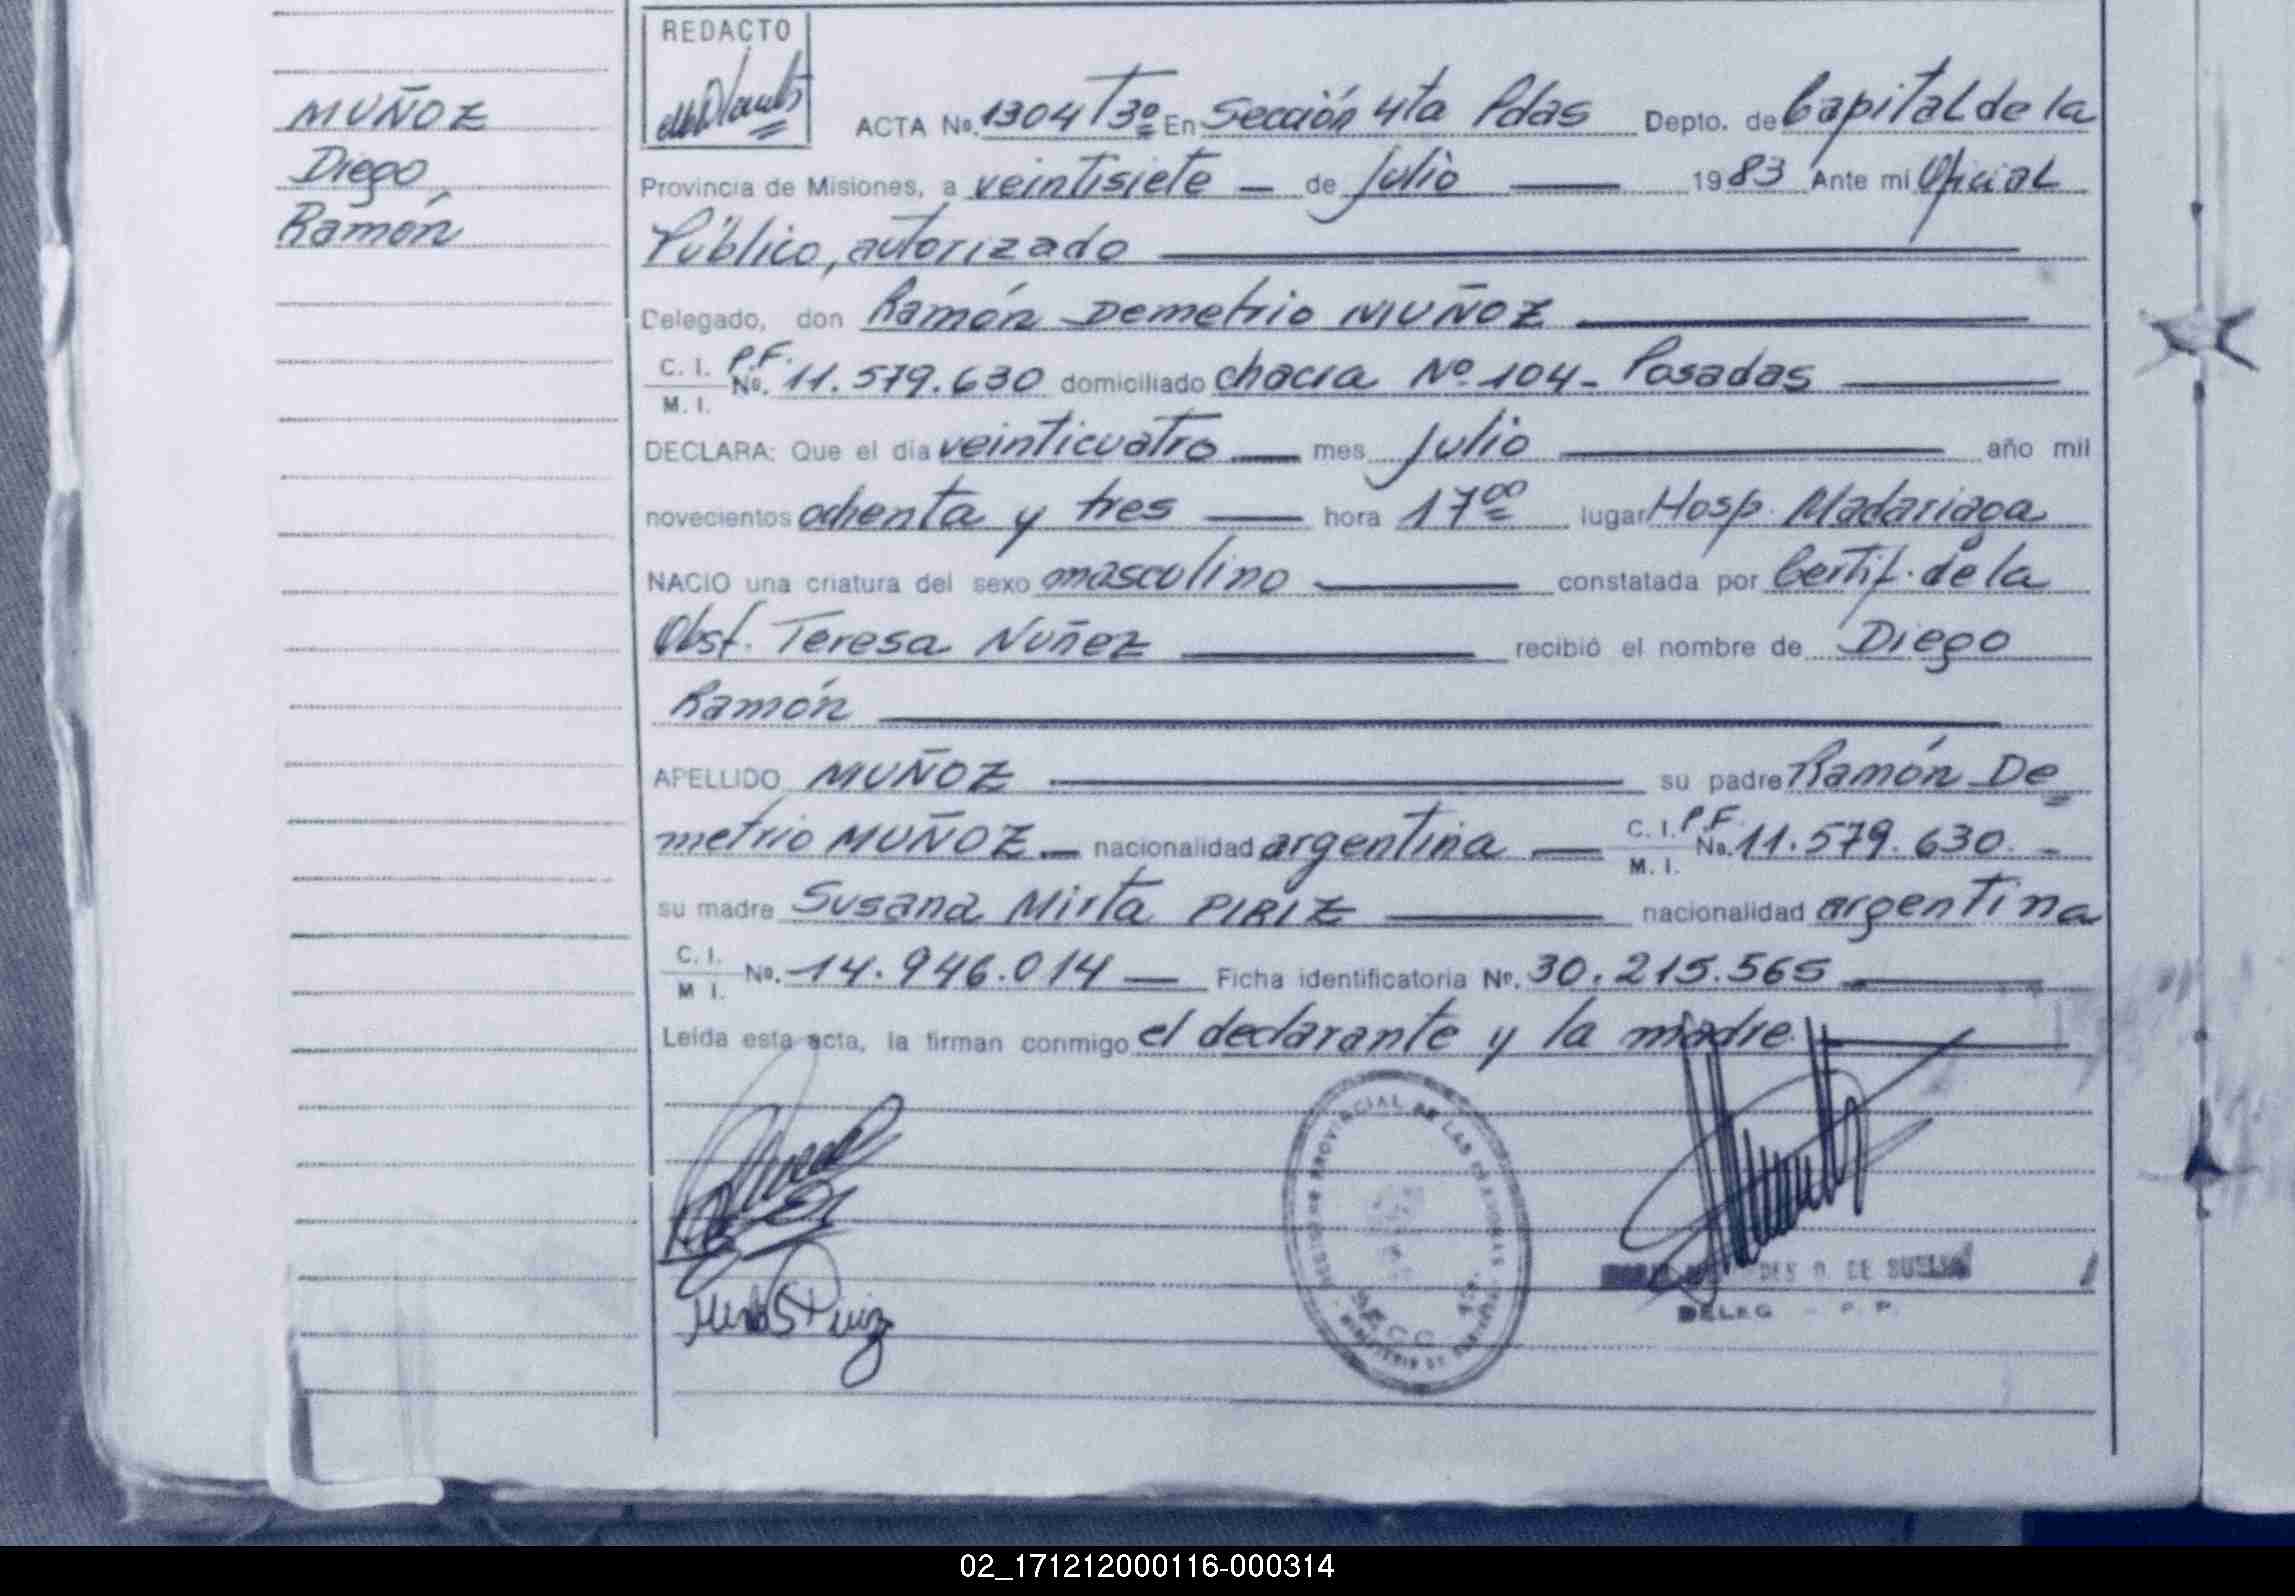 MUÑOZ
Diego
Ramón
REDACTO
ACTA No. 1304 Tº 3º En Sección 4ta Pdas Depto. de Capital de la
Provincia de Misiones, a veintisiete — de Julio — 1983 Ante mi Oficial
Público, autorizado
Delegado, don Ramón Demetrio MUÑOZ
C. I. P.F.
M. I. No. 11.579.630 domiciliado chacra Nº 104 - Posadas
DECLARA: Que el día veinticuatro — mes Julio — año mil
novecientos ochenta y tres — hora 17 00 lugar Hosp. Madariaga
NACIO una criatura del sexo masculino — constatada por Certif. de la
Obst. Teresa Nuñez — recibió el nombre de Diego
Ramón
APELLIDO MUÑOZ — su padre Ramón De
metrio MUÑOZ — nacionalidad argentina — C. I. P.F. M. I. No. 11.579.630. -
su madre Susana Mirta PIRIZ — nacionalidad argentina
C. I. M I. No. 14.946.014 — Ficha identificatoria Nº. 30.215.565
Leída esta acta, la firman conmigo el declarante y la madre.
PROVINCIAL DE LAS PERSONAS
DE SU
DELEG - P. P.
02_171212000116-000314